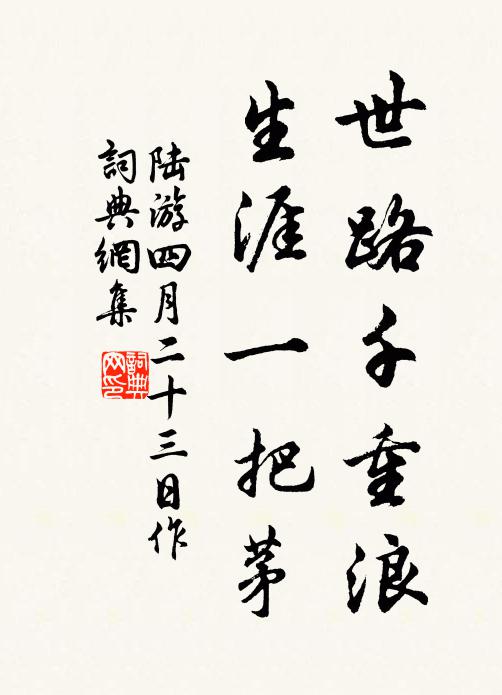 世路千重浪
生涯一把茅
陆游四月二十三日作
詞典網集
詞典网印